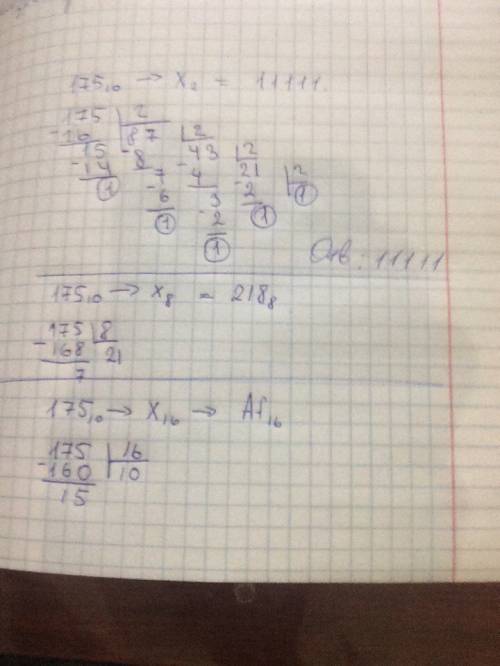 175₁₀ → X₂ = 11111.
175 2
-16 87 2
15 -8 43 2
-14 7 -4 21 2
1 -6 3 -2 1
1 -2 1
1
Отв: 11111
175₁₀ → X₈ = 218₈
175 8
-168 21
7
175₁₀ → X₁₆ → Af₁₆
175 16
-160 10
15